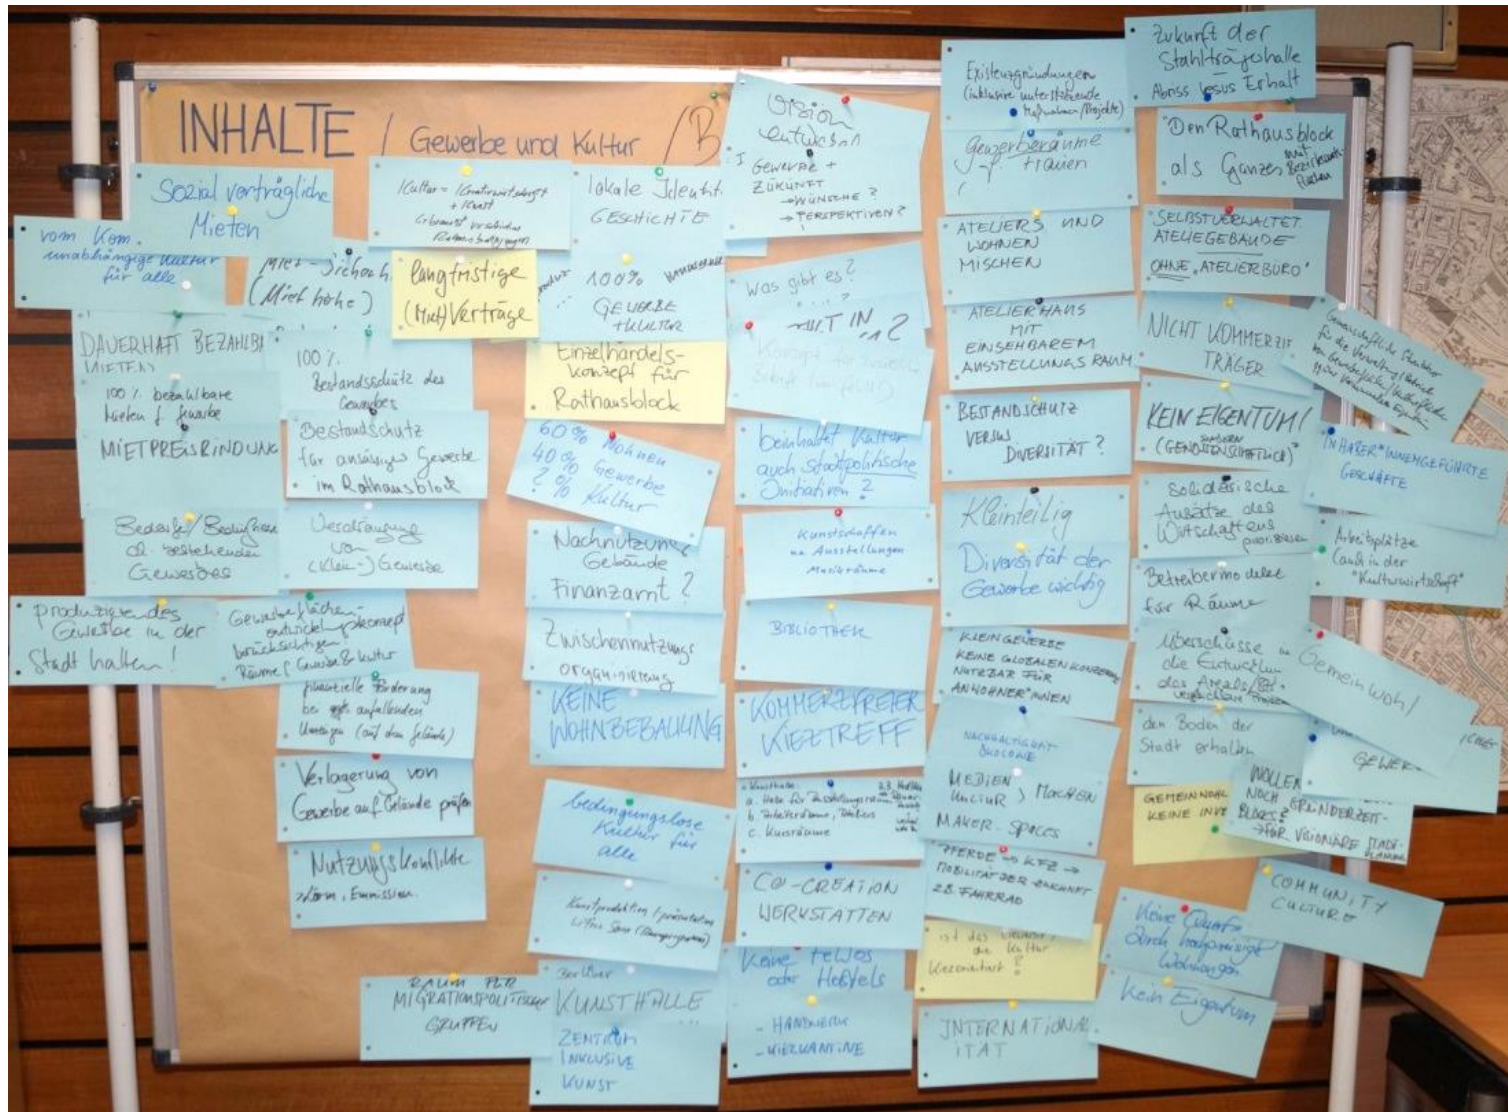 INHALTE / Gewerbe und Kultur / B
Sozial verträgliche
Mieten
vom Kom.
unabhängige Kultur
für alle
Miet-Sicherh
(Miethöhe)
DAUERHAFT BEZAHLBA
MIETEN
100% bezahlbare
Mieten f. Gewerbe
MIETPREISBINDUNG
Bedarfe/
d. bestehenden
Gewerbes
produzierendes
Gewerbe in der
Stadt halten!
100%
Bestandsschutz des
Gewerbes
Bestandschutz
für ansässiges Gewerbe
im Rathausblock
Verdrängung
von
(Klein-) Gewerbe
Gewerbeflächen-
entwicklungskonzept
berücksichtigen
Räume f. Gewerbe & Kultur
finanzielle Förderung
bei anfallenden
Umzügen (auf dem Gelände)
Verlagerung von
Gewerbe auf Gelände prüfen
Nutzungskonflikte
Lärm, Emmission
RAUM FÜR
MIGRATIONSPOLITISCHE
GRUPPEN
Kultur = Kreativwirtschaft
+ Kunst
langfristige
(Miet)Verträge
lokale Identit
GESCHICHTE
100%
GEWERBE
+KULTUR
Einzelhandels-
konzept für
Rathausblock
60% Wohnen
40% Gewerbe
? % Kultur
Nachnutzung
Gebäude
Finanzamt?
Zwischennutzung
organisieren
KEINE
WOHNBEBAUUNG
bedingungslose
Kultur für
alle
Kunstproduktion + präsentation
Berliner
KUNSTHALLE
ZENTRUM
INKLUSIVE
KUNST
Vision
entwickeln
GEWERBE +
ZUKUNFT
→WÜNSCHE?
→PERSPEKTIVEN?
Was gibt es?
beinhaltet Kultur
auch stadtpolitische
Initiativen?
Kunstschaffen
Ausstellungen
Musikräume
BIBLIOTHEK
KOMMERZFREIER
KIEZTREFF
Kunsthalle
a. Halle für Ausstellungsräume
b. Arbeitsräume, Ateliers
c. Kunsträume
CO-CREATION
WERKSTÄTTEN
Keine FeWos
oder Ho(s)tels
- HANDWERK
- KIEZKANTINE
Existenzgründungen
(inklusive unterstützende
Maßnahmen/Projekte)
Gewerberäume
f. Frauen
ATELIERS UND
WOHNEN
MISCHEN
ATELIERHAUS
MIT
EINSEHBAREM
AUSSTELLUNGSRAUM
BESTANDSCHUTZ
VERSUS
DIVERSITÄT?
Kleinteilig
Diversität der
Gewerbe wichtig
KLEINGEWERBE
KEINE GLOBALEN KONZERNE
NUTZBAR FÜR
ANWOHNER*INNEN
NACHHALTIGKEIT
ÖKOLOGIE
MEDIEN
KULTUR > MACHEN
MAKER-SPACES
PFERDE → KFZ →
MOBILITÄT DER ZUKUNFT
Z.B. FAHRRAD
ist das Gewerbe/
die Kultur
kiezorientiert?
INTERNATIONAL
ITÄT
Zukunft der
Stahlträgerhalle
Abriss versus Erhalt
Den Rathausblock
als Ganzes
SELBSTVERWALTET.
ATELIEGEBÄUDE
OHNE „ATELIERBÜRO"
NICHT KOMMERZIE
TRÄGER
KEIN EIGENTUM!
SONDERN
(GENOSSENSCHAFTLICH)
Solidarische
Ansätze des
Wirtschaftens
priorisieren
Betreibermodelle
für Räume
Überschüsse in
die Entwicklun
des Areals
den Boden der
Stadt erhalten
GEMEINWOHL
KEINE INVE
Keine Querf
durch hochpreisige
Wohnungen
Kein Eigentum
INHABER*INNENGEFÜHRTE
GESCHÄFTE
Arbeitsplätze
(auch in der
"Kulturwirtschaft"
Gemeinwohl
GEWER
WOLLEN
NOCH GRÜNDERZEIT-
BLOCKS?
→FÜR VISIONÄRE STADT-
PLANUNG
COMMUNITY
CULTURE